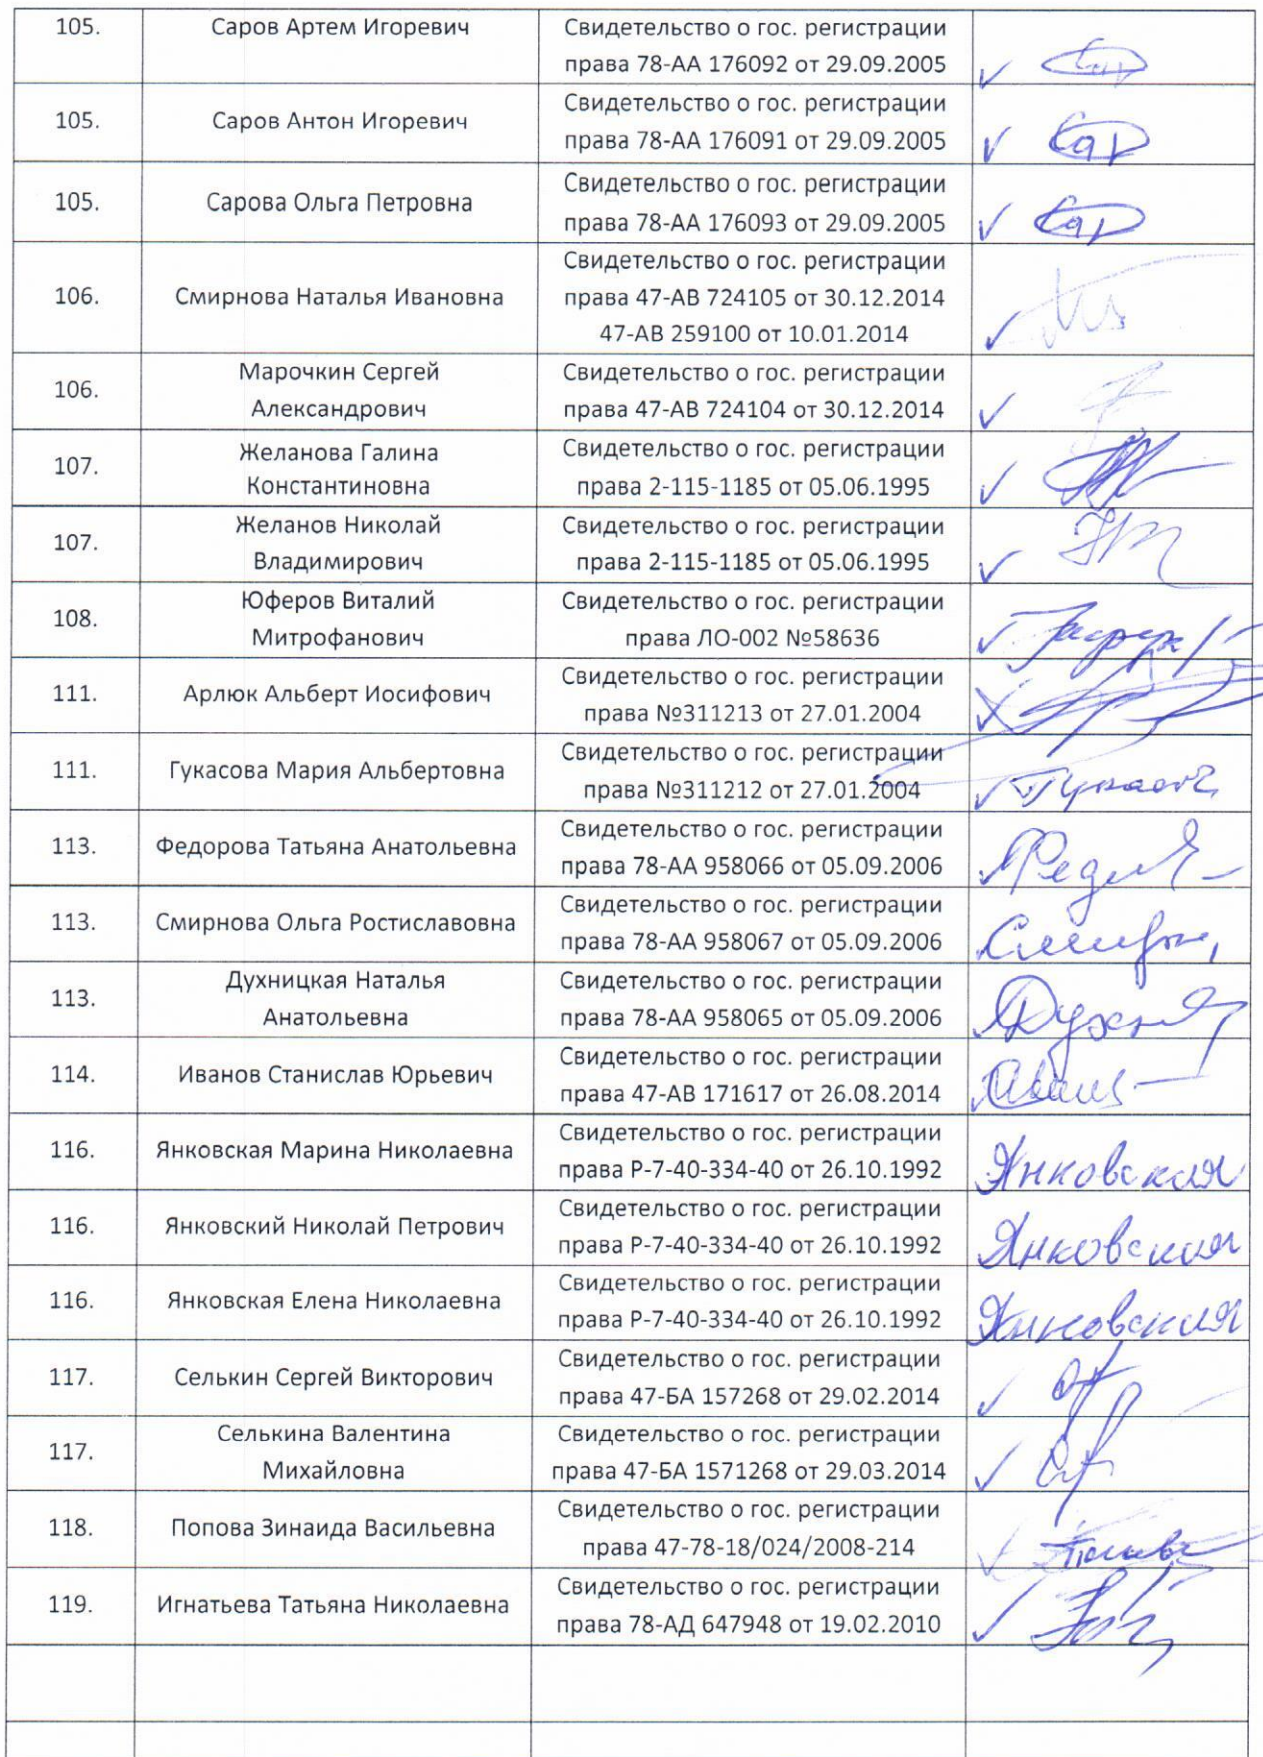 105. Саров Артем Игоревич Свидетельство о гос. регистрации
права 78-АА 176092 от 29.09.2005
105. Саров Антон Игоревич Свидетельство о гос. регистрации
права 78-АА 176091 от 29.09.2005
105. Сарова Ольга Петровна Свидетельство о гос. регистрации
права 78-АА 176093 от 29.09.2005
106. Смирнова Наталья Ивановна Свидетельство о гос. регистрации
права 47-АВ 724105 от 30.12.2014
47-АВ 259100 от 10.01.2014
106. Марочкин Сергей Свидетельство о гос. регистрации
Александрович права 47-АВ 724104 от 30.12.2014
107. Желанова Галина Свидетельство о гос. регистрации
Константиновна права 2-115-1185 от 05.06.1995
107. Желанов Николай Свидетельство о гос. регистрации
Владимирович права 2-115-1185 от 05.06.1995
108. Юферов Виталий Свидетельство о гос. регистрации
Митрофанович права ЛО-002 №58636
111. Арлюк Альберт Иосифович Свидетельство о гос. регистрации
права №311213 от 27.01.2004
111. Гукасова Мария Альбертовна Свидетельство о гос. регистрации
права №311212 от 27.01.2004
113. Федорова Татьяна Анатольевна Свидетельство о гос. регистрации
права 78-АА 958066 от 05.09.2006
113. Смирнова Ольга Ростиславовна Свидетельство о гос. регистрации
права 78-АА 958067 от 05.09.2006
113. Духницкая Наталья Свидетельство о гос. регистрации
Анатольевна права 78-АА 958065 от 05.09.2006
114. Иванов Станислав Юрьевич Свидетельство о гос. регистрации
права 47-АВ 171617 от 26.08.2014
116. Янковская Марина Николаевна Свидетельство о гос. регистрации
права Р-7-40-334-40 от 26.10.1992 Янковская
116. Янковский Николай Петрович Свидетельство о гос. регистрации
права Р-7-40-334-40 от 26.10.1992 Янковская
116. Янковская Елена Николаевна Свидетельство о гос. регистрации
права Р-7-40-334-40 от 26.10.1992 Янковская
117. Селькин Сергей Викторович Свидетельство о гос. регистрации
права 47-БА 157268 от 29.02.2014
117. Селькина Валентина Свидетельство о гос. регистрации
Михайловна права 47-БА 1571268 от 29.03.2014
118. Попова Зинаида Васильевна Свидетельство о гос. регистрации
права 47-78-18/024/2008-214
119. Игнатьева Татьяна Николаевна Свидетельство о гос. регистрации
права 78-АД 647948 от 19.02.2010